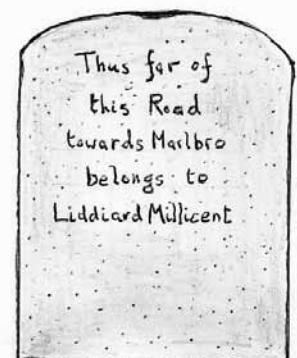 Thus far of
this Road
towards Marlbro
belongs to
Liddiard Millicent